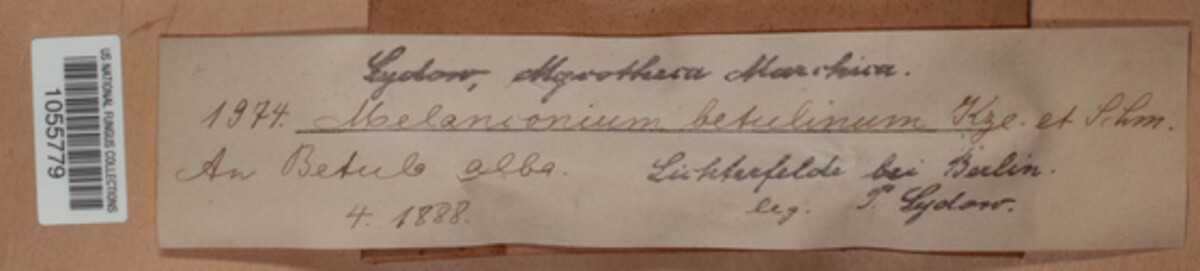 Sydow, Mycotheca Marchica.
1974. Melanconium betulinum Kze. et Schm.
An Betula alba. Lichterfelde bei Berlin.
4. 1888. leg. P. Sydow.
US NATIONAL FUNGUS COLLECTIONS
1055779